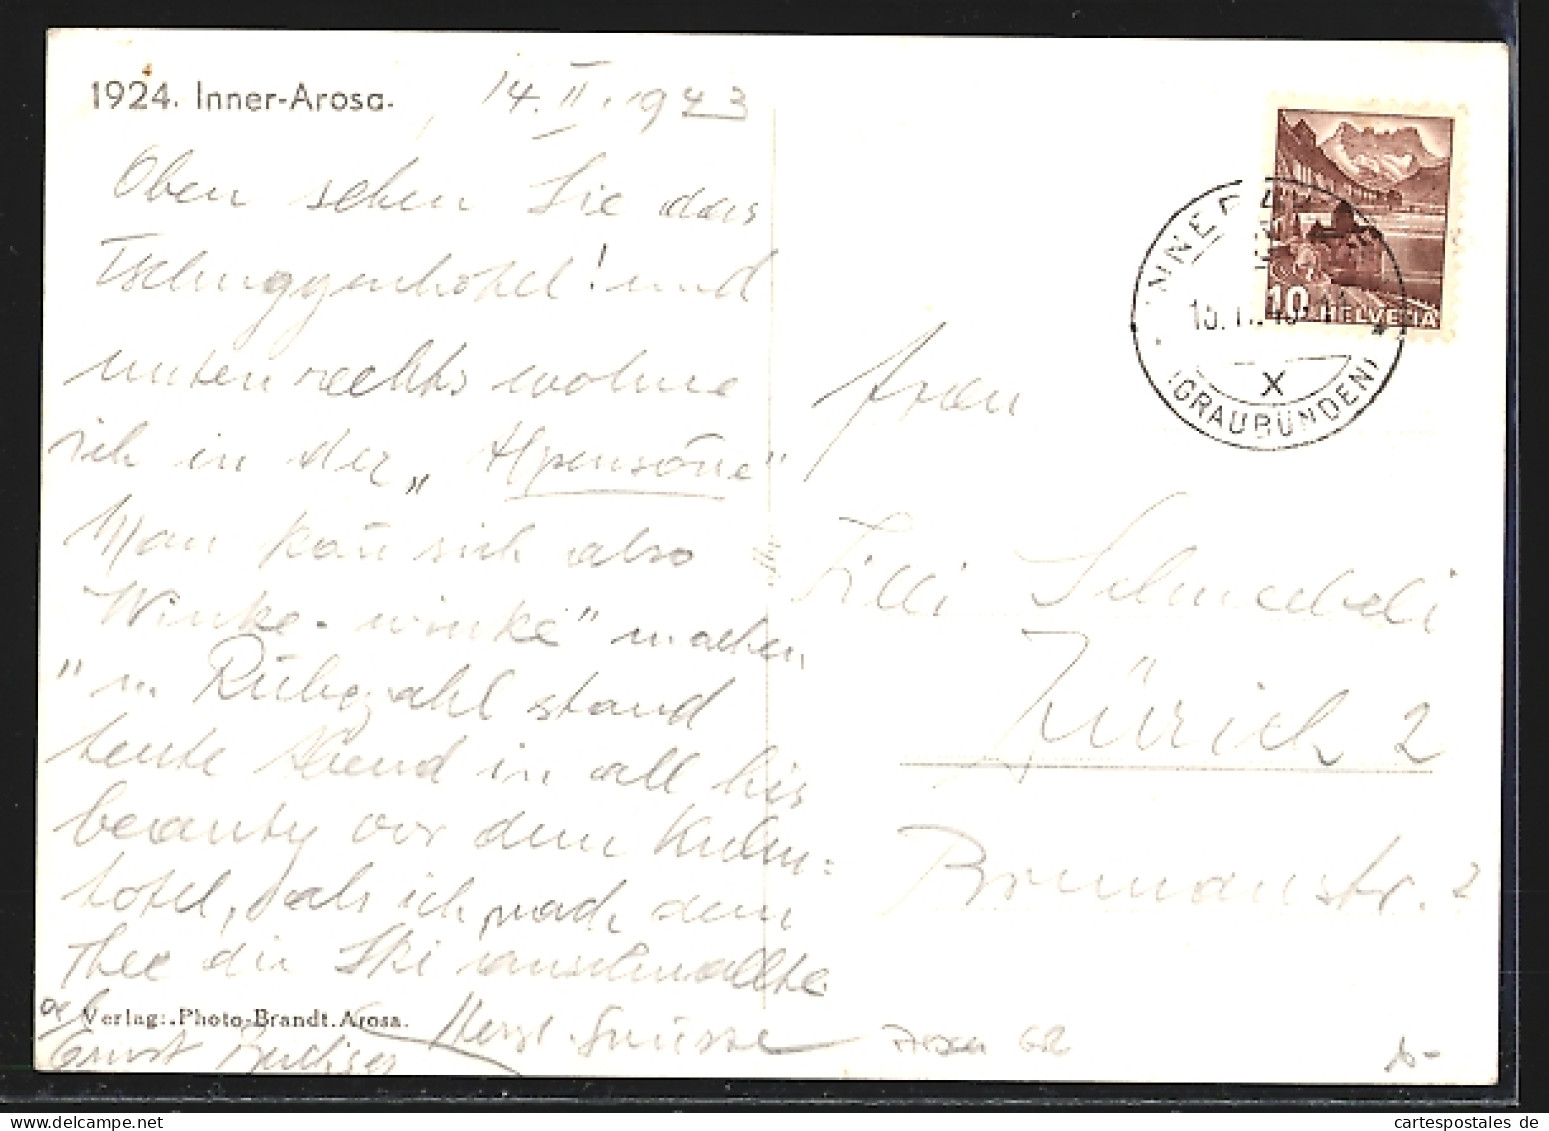 1924. Inner-Arosa.
14. II. 1943
Oben sehen Sie das
Tschuggenhotel! und
unten rechts wohne
ich in der „Alpensoñe"
Man kañ sich also
"Winke-winke" machen
" m. Rübezahl stand
heute Abend in all his
beauty vor dem Kulm=
hotel, als ich nach dem
Thee die Ski anschnallte.
Herzl. Grüsse
Ernst
Verlag: Photo-Brandt. Arosa.
Frau
Lilli Schneebeli
Zürich 2
Brunaustr. 2
Arosa GR
INNER
(GRAUBÜNDEN)
X
10 HELVETIA
cartespostales de